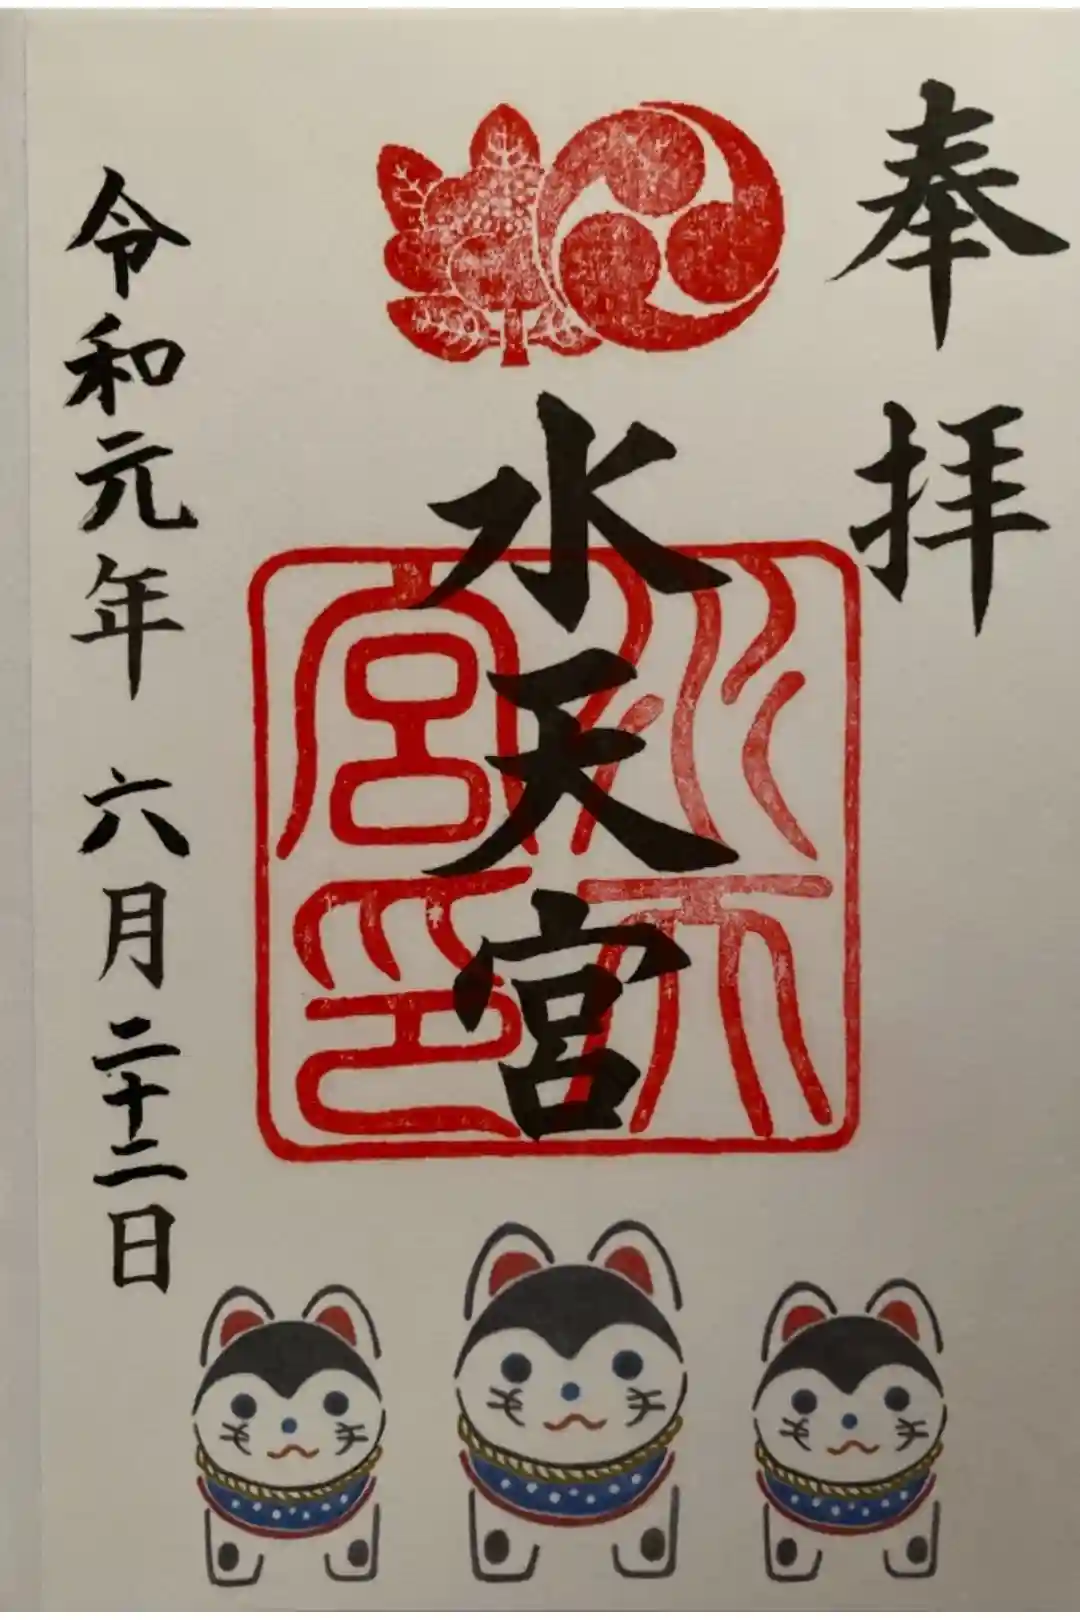 奉拝
水天宮
水天宮印
令和元年 六月二十二日